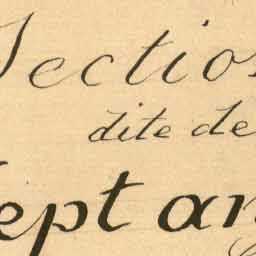 Section
dite de
Sept an